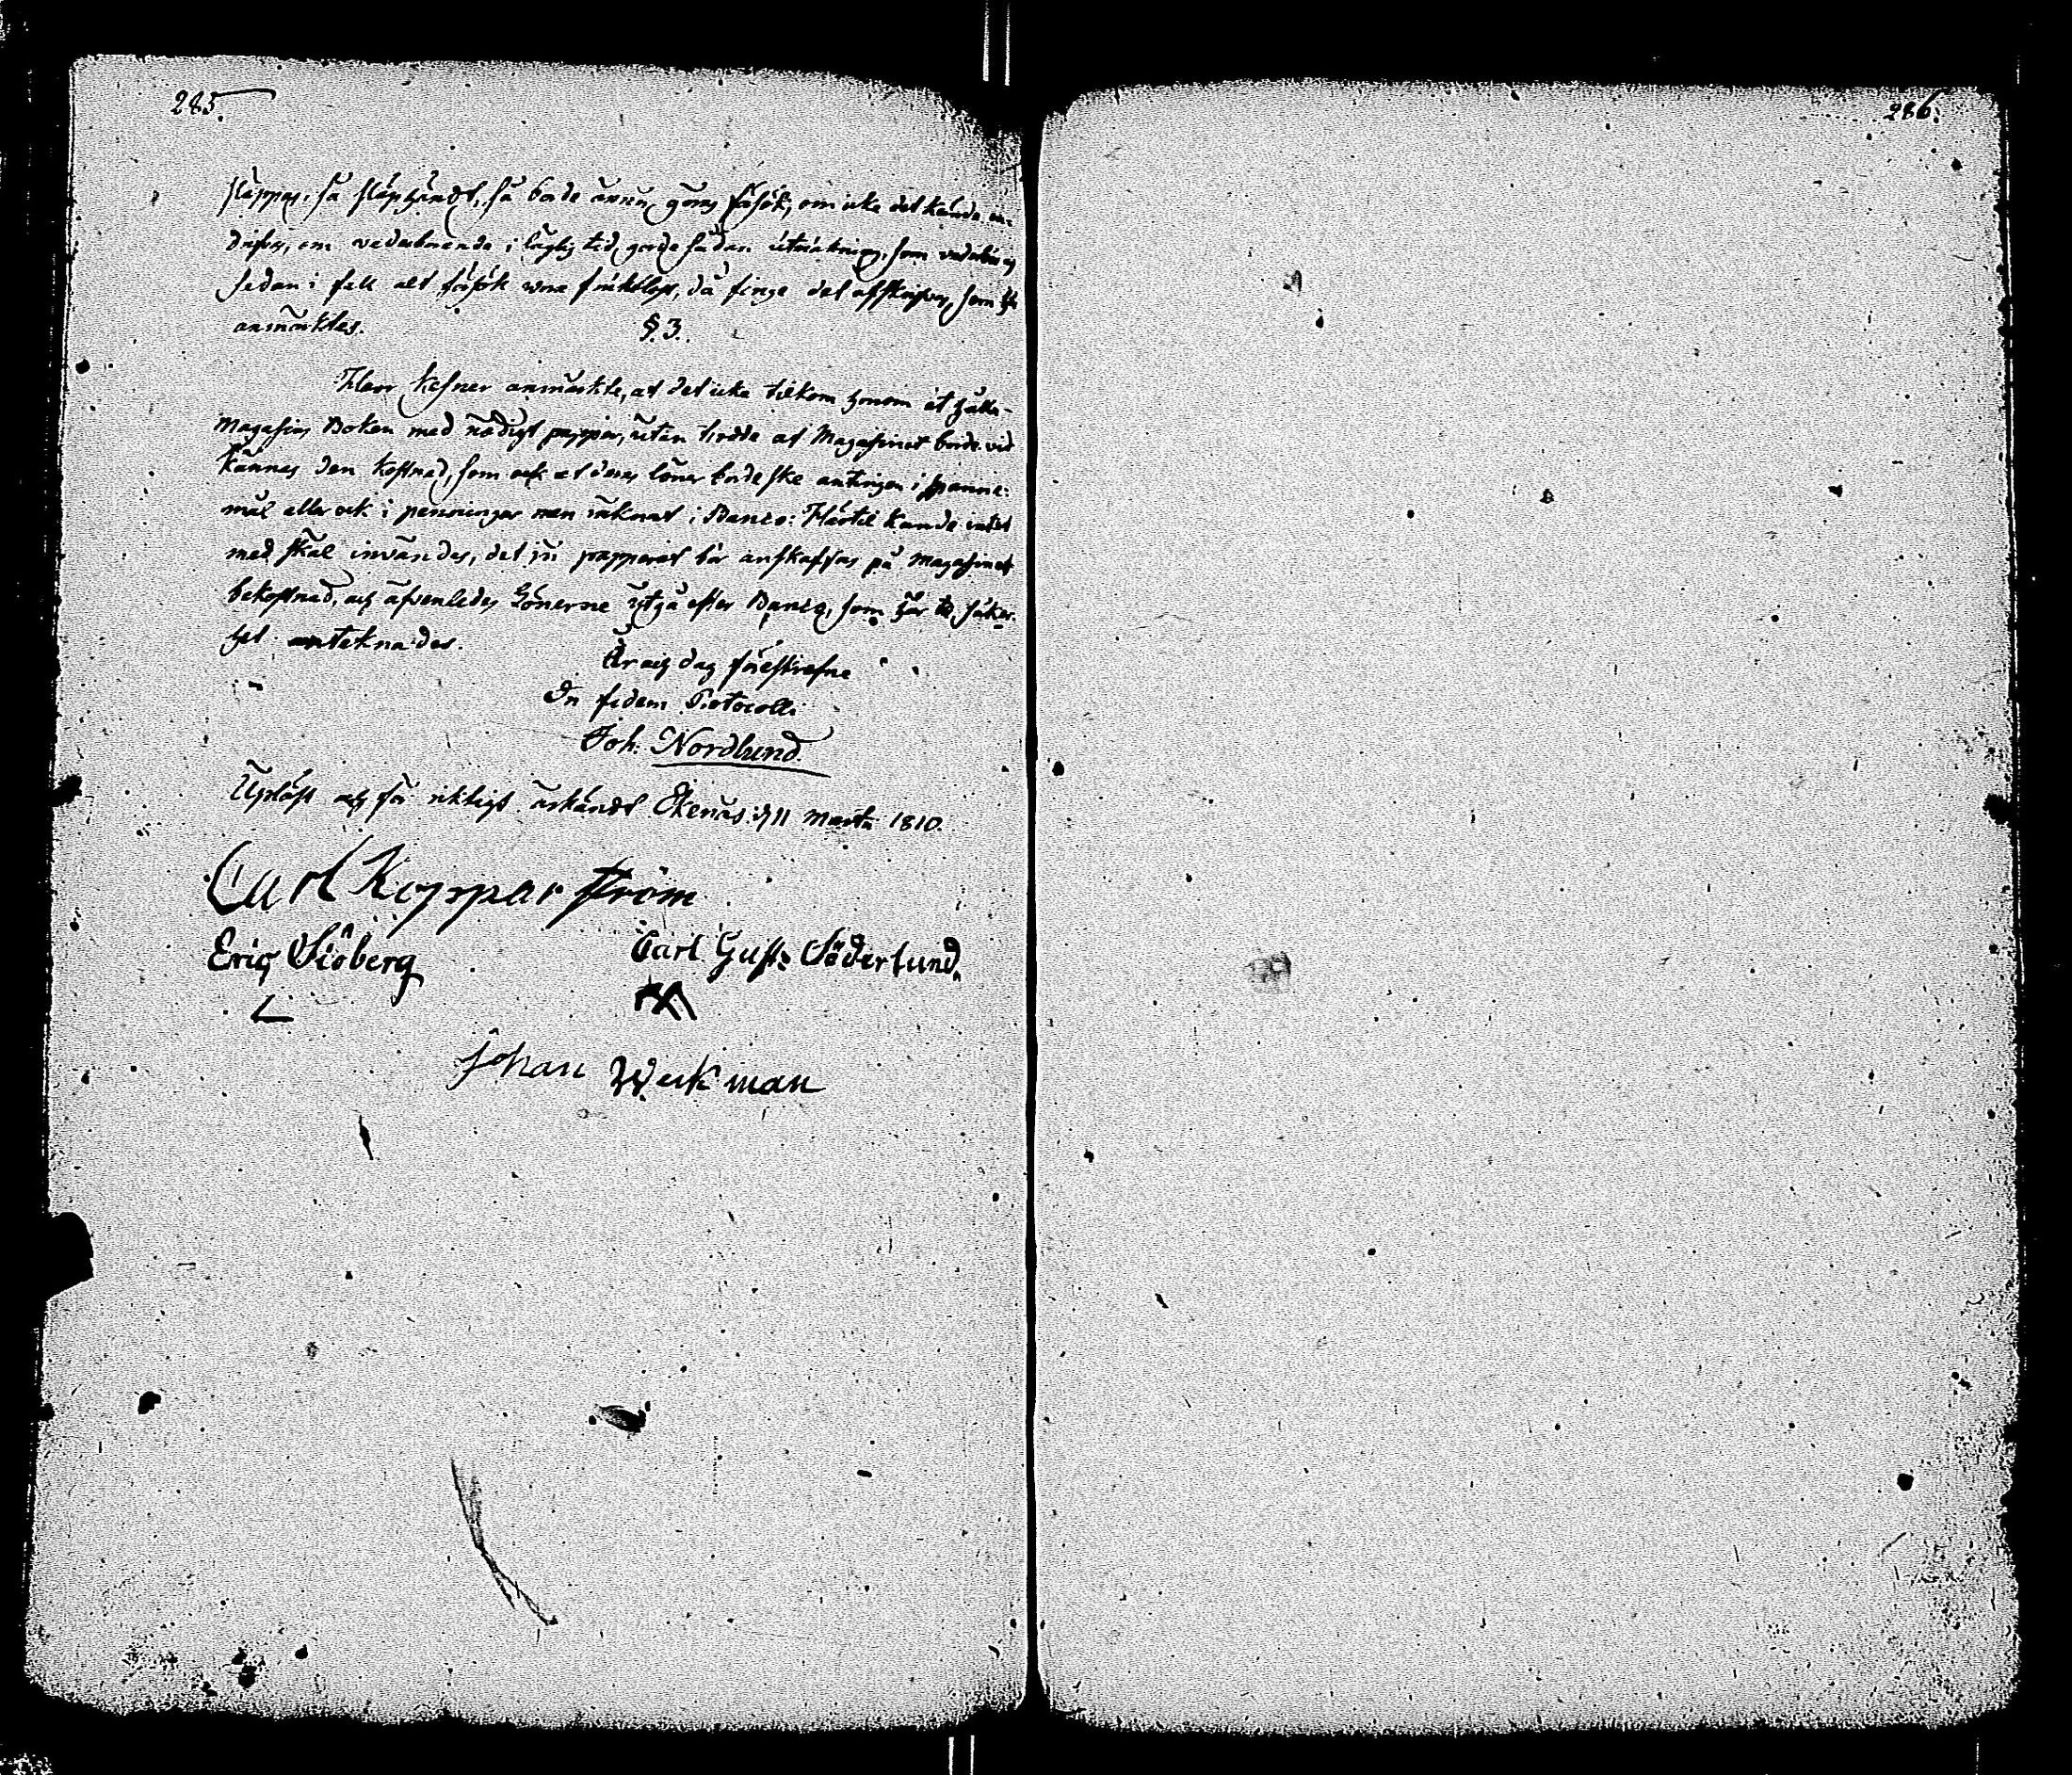 285.
286.
släppas, så släphändt, så borde äfven göras försök, om icke det kunde in-
drifvas, om vederbörande i laglig tid, gorde sådan uträkning, som vederbör och
sedan i fall alt försök vore fruktlöst, då finge det afskrifvas, som
anmärktes. § 3.
Herr Kefner anmärkte, at det icke tilkom honom at hålla
Magasins Boken med nödigt papper, utan trodde at Magasinet borde vid
kännas den kostnad, som ock at deras löner borde ske antingen i spanne-
mål eller ock i penningar men räknat i Banco: Härtil kunde intet
med skäl invändas, det ju papperet bör anskaffas på Magasinets
bekostnad, och äfvenledes Lönerne utgå efter Banco, som här til säker-
het antecknades.
År och dag föreskrefne
In fidem Protocolli
Joh: Nordlund.
Upläst och för riktigt erkändt Ekenäs d 11 Martii 1810.
Carl Kopparström
Eric Siöberg Carl Gust: Söderlund.
Johan Weckman